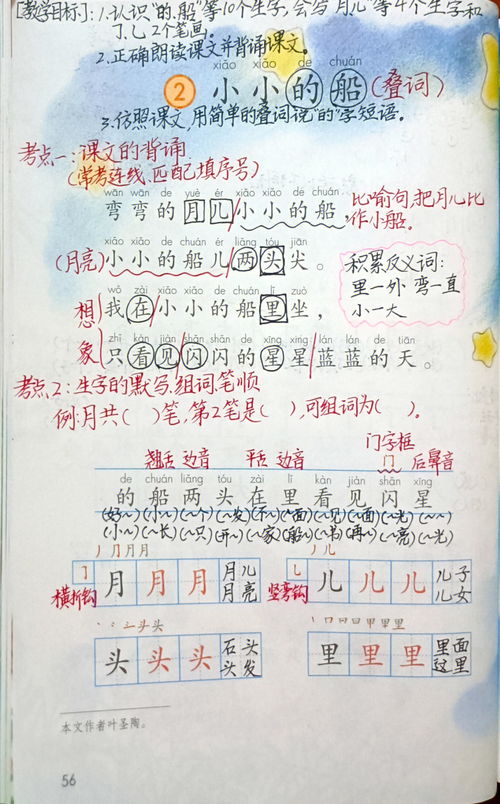 [教学目标]:1.认识"的、船"等10个生字,会写"月、儿"等4个生字和
了、乚2个笔画。
2.正确朗读课文并背诵课文。
xiǎo xiǎo de chuán
2 小小的船(叠词)
3.依照课文,用简单的叠词说"的"字短语。
考点一:课文的背诵
(常考连线、匹配、填序号)
wān wān de yuè ér xiǎo xiǎo de chuán
弯弯的月儿/小小的船,
比喻句,把月儿比
作小船。
xiǎo xiǎo de chuán ér liǎng tóu jiān
(月亮)小小的船儿/两头尖。
积累反义词:
里一外 弯一直
小一大
wǒ zài xiǎo xiǎo de chuán lǐ zuò
我在/小小的船里坐,
zhǐ kàn jiàn shǎn shǎn de xīng xing lán lán de tiān
只看见/闪闪的星星/蓝蓝的天。
想象
考点2:生字的默写、组词、笔顺
例:月共( )笔,第2笔是( ),可组词为( )。
翘舌 边音 平舌 边音 门字框 门 后鼻音
de chuán liǎng tóu zài lǐ kàn jiàn shǎn xīng
的 船 两 头 在 里 看 见 闪 星
(好~)(小~)(~个)(~发)(不~)(~面)(~见)(~面)(~光)(~~)
(小~)(~长)(~只)(开~)(~家)(船~)(~书)(再~)(~亮)(~光)
丿 ⺆ 月 月
丿 儿
㇆ 月 月 月 月儿
横折钩 月亮
乚 儿 儿 儿 儿子
竖弯钩 儿女
头 头
丨 口 日 日 甲 里 里
头 头 头 石头
头发
里 里 里 里面
这里
本文作者叶圣陶。
56